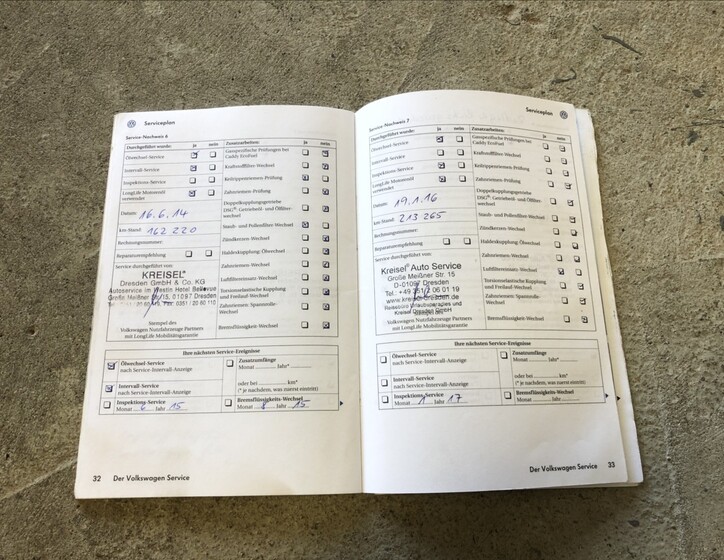 Serviceplan
Service-Nachweis 6
Durchgeführt wurde: ja nein
Ölwechsel-Service
Intervall-Service
Inspektions-Service
LongLife Motorenöl verwendet
Datum: 16.6.14
km-Stand: 162 220
Rechnungsnummer:
Reparaturempfehlung
Service durchgeführt von:
KREISEL®
Dresden GmbH & Co. KG
Autoservice im Westin Hotel Bellevue
Große Meißner Str. 15, 01097 Dresden
Stempel des
Volkswagen Nutzfahrzeuge Partners
mit LongLife Mobilitätsgarantie
Zusatzarbeiten: ja nein
Gasspezifische Prüfungen bei
Caddy EcoFuel
Kraftstofffilter-Wechsel
Keilrippenriemen-Prüfung
Zahnriemen-Prüfung
Doppelkupplungsgetriebe
DSG®-Getriebeöl- und Ölfilter-
wechsel
Staub- und Pollenfilter-Wechsel
Zündkerzen-Wechsel
Haldexkupplung: Ölwechsel
Zahnriemen-Wechsel
Luftfiltereinsatz-Wechsel
Torsionselastische Kupplung
und Freilauf-Wechsel
Zahnriemen-Spannrolle-
Wechsel
Bremsflüssigkeits-Wechsel
Ihre nächsten Service-Ereignisse
Ölwechsel-Service
nach Service-Intervall-Anzeige
Intervall-Service
nach Service-Intervall-Anzeige
Inspektions-Service
Monat 6 Jahr 15
Zusatzumfänge
Monat ......... Jahr*.........
oder bei .................. km*
(* je nachdem, was zuerst eintritt)
Bremsflüssigkeits-Wechsel
Jahr 15
32 Der Volkswagen Service
Serviceplan
Service-Nachweis 7
Durchgeführt wurde: ja nein
Ölwechsel-Service
Intervall-Service
Inspektions-Service
LongLife Motorenöl
verwendet
Datum: 19.1.16
km-Stand: 213 265
Rechnungsnummer:
Reparaturempfehlung
Service durchgeführt von:
Kreisel® Auto Service
Große Meißner Str. 15
D-01097 Dresden
Tel.: +49 351/2 06 01 19
www.kreisel-dresden.de
Kreisel Dresden GmbH
Stempel des
Volkswagen Nutzfahrzeuge Partners
mit LongLife Mobilitätsgarantie
Zusatzarbeiten: ja nein
Gasspezifische Prüfungen bei
Caddy EcoFuel
Kraftstofffilter-Wechsel
Keilrippenriemen-Prüfung
Zahnriemen-Prüfung
Doppelkupplungsgetriebe
DSG®-Getriebeöl- und Ölfilter-
wechsel
Staub- und Pollenfilter-Wechsel
Zündkerzen-Wechsel
Haldexkupplung: Ölwechsel
Zahnriemen-Wechsel
Luftfiltereinsatz-Wechsel
Torsionselastische Kupplung
und Freilauf-Wechsel
Zahnriemen-Spannrolle-
Wechsel
Bremsflüssigkeits-Wechsel
Ihre nächsten Service-Ereignisse
Ölwechsel-Service
nach Service-Intervall-Anzeige
Intervall-Service
nach Service-Intervall-Anzeige
Inspektions-Service
Monat 1 Jahr 17
Zusatzumfänge
Monat ......... Jahr*.........
oder bei .................. km*
(* je nachdem, was zuerst eintritt)
Bremsflüssigkeits-Wechsel
Monat ......... Jahr.........
Der Volkswagen Service 33